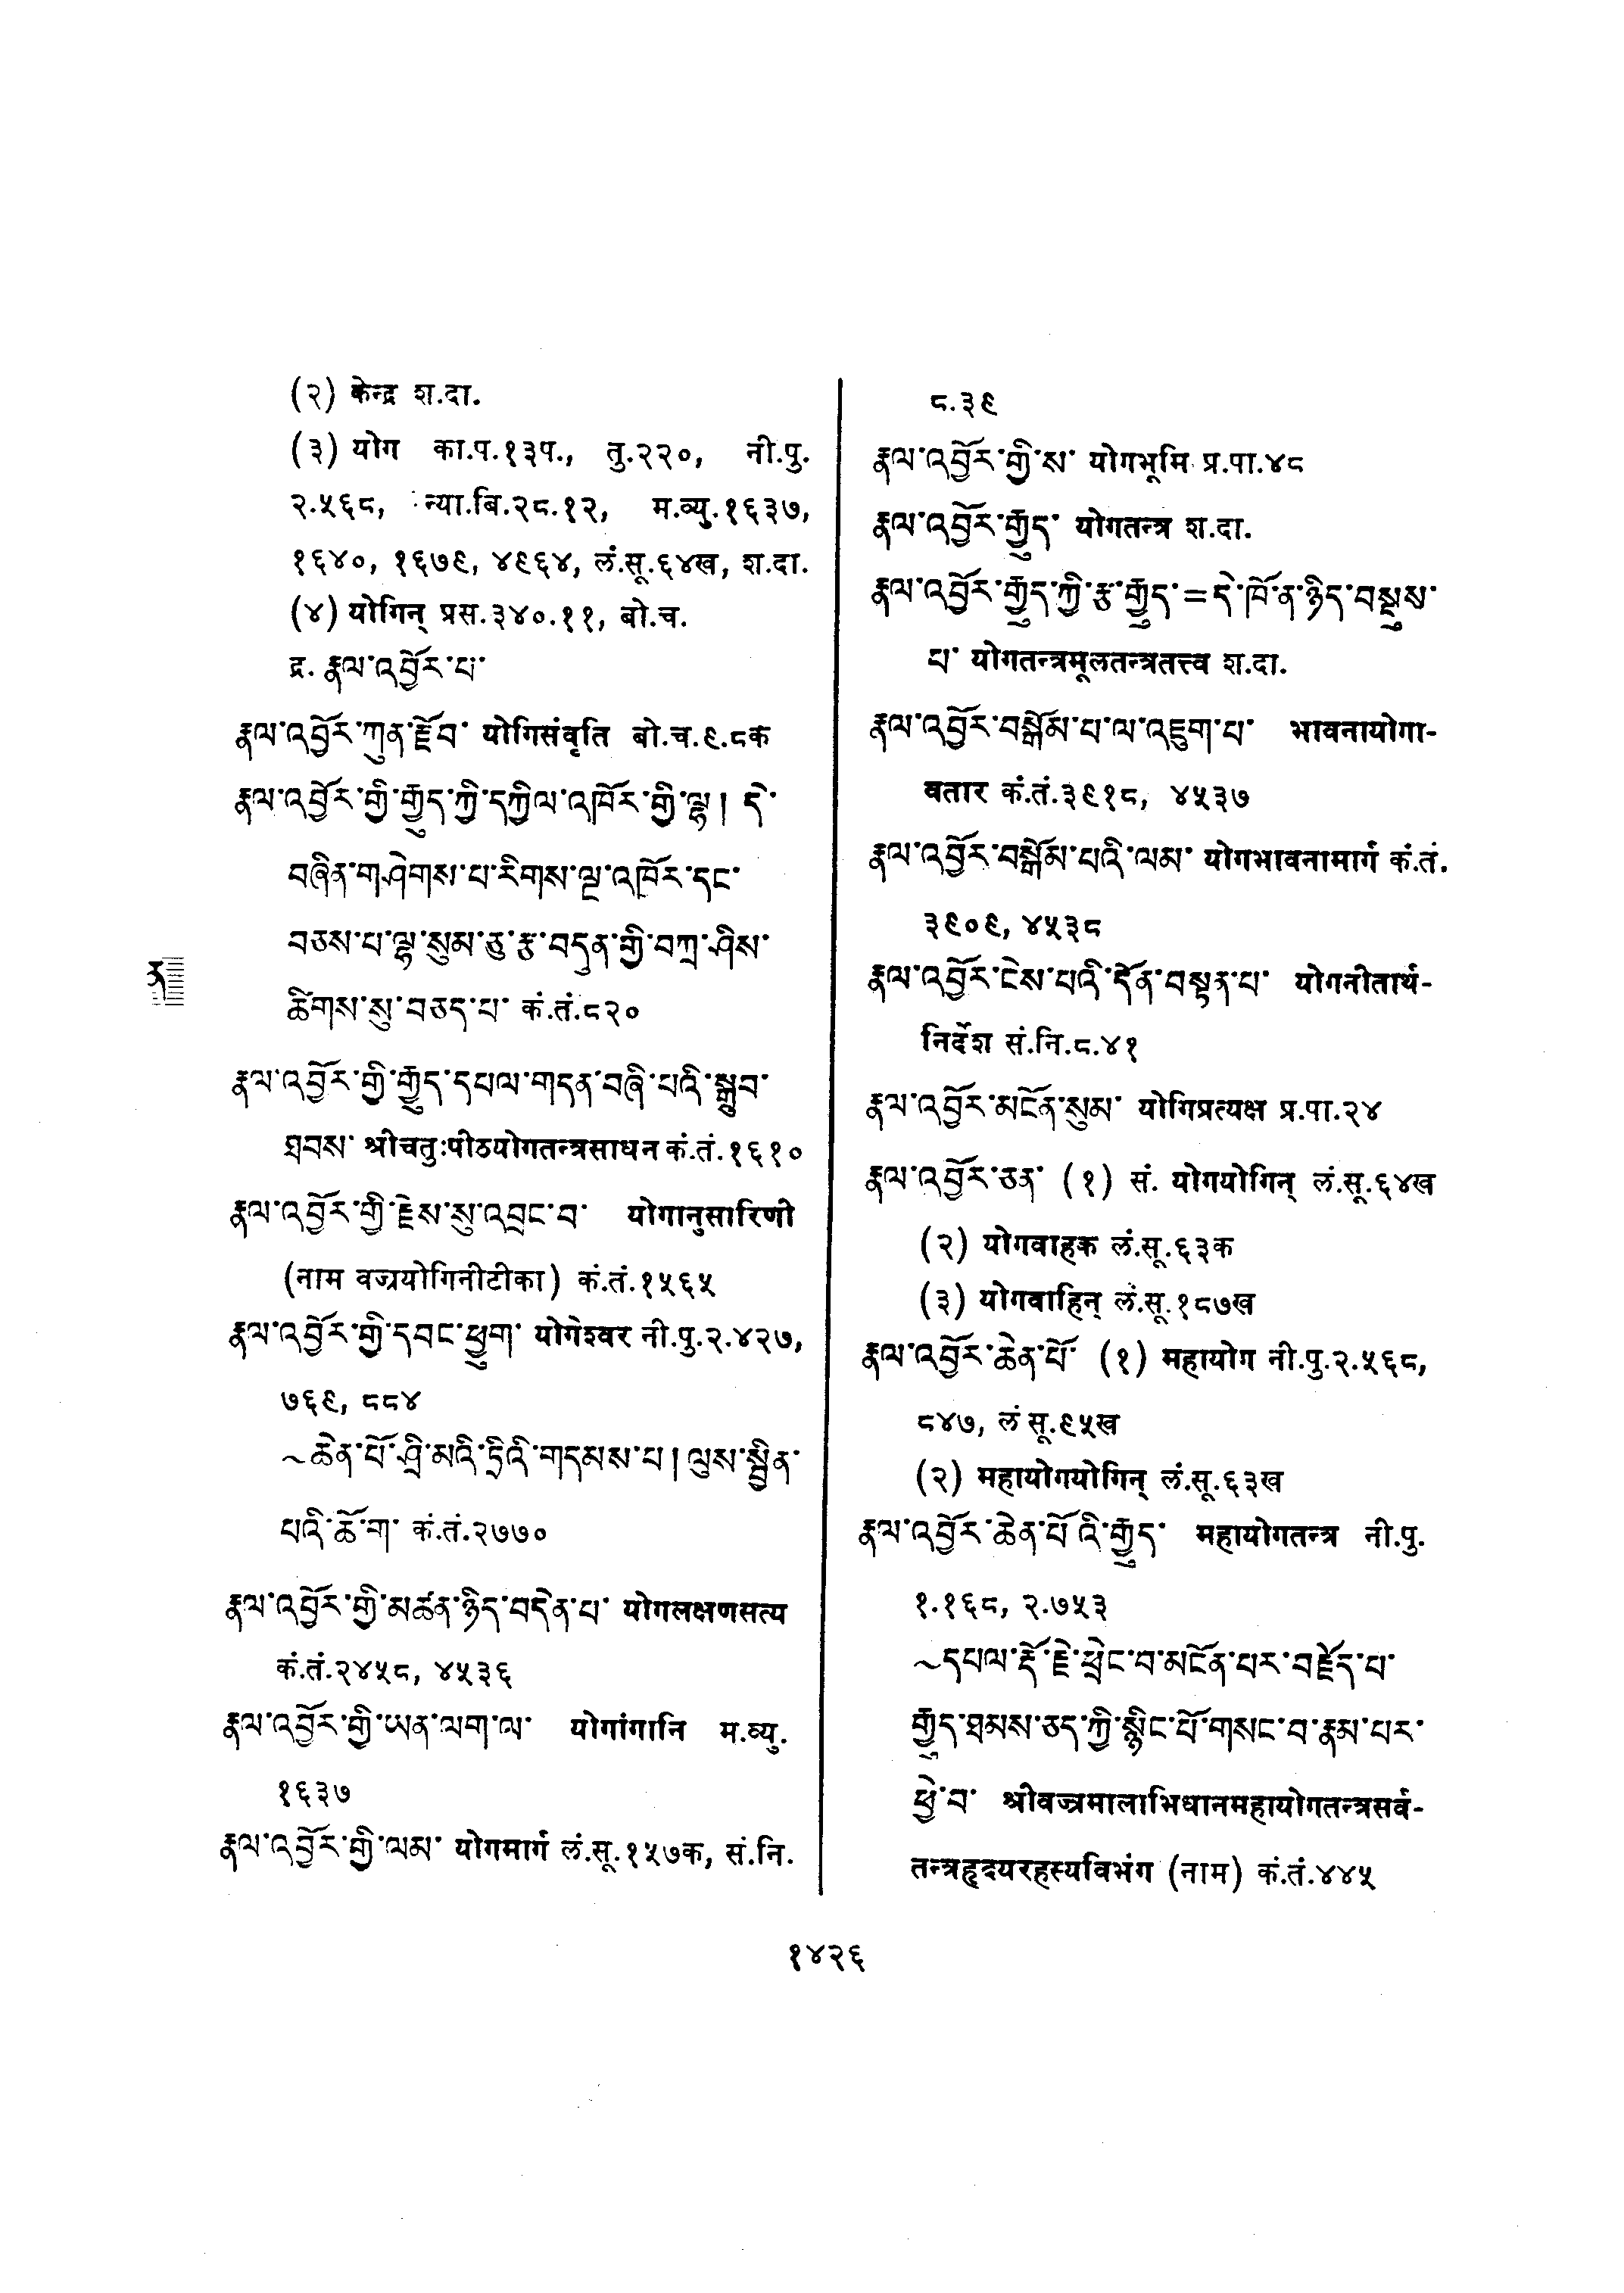 (२) केन्द्र श.दा.
(३) योग का.प.१३प., तु.२२०, नी.पु.
२.५६८, न्या.बि.२८.१२, म.व्यु.१६३७,
१६४०, १६७९, ४९६४, लं.सू.६४ख, श.दा.
(४) योगिन् प्रस.३४०.११, बो.च.
द्र. རྣལ་འབྱོར་པ་
རྣལ་འབྱོར་ཀུན་རྫོབ་ योगिसंवृति बो.च.९.८क
རྣལ་འབྱོར་གྱི་རྒྱུད་ཀྱི་དཀྱིལ་འཁོར་གྱི་ལྷ། དེ་
བཞིན་གཤེགས་པ་རིགས་ལྔ་འཁོར་དང་
བཅས་པ་ལྷ་སུམ་ཅུ་རྩ་བདུན་གྱི་བཀྲ་ཤིས་
ཚིགས་སུ་བཅད་པ་ कं.तं.८२०
རྣལ་འབྱོར་གྱི་རྒྱུད་དཔལ་གདན་བཞི་པའི་སྒྲུབ་
ཐབས་ श्रीचतुःपीठयोगतन्त्रसाधन कं.तं.१६१०
རྣལ་འབྱོར་གྱི་རྗེས་སུ་འབྲང་བ་ योगानुसारिणी
(नाम वज्रयोगिनीटीका) कं.तं.१५६५
རྣལ་འབྱོར་གྱི་དབང་ཕྱུག་ योगेश्वर नी.पु.२.४२७,
७६९, ८८४
~ཆེན་པོ་ཤྲི་མའི་དྲིའི་གདམས་པ། ལུས་སྦྱིན་
པའི་ཆོ་ག་ कं.तं.२७७०
རྣལ་འབྱོར་གྱི་མཚན་ཉིད་བདེན་པ་ योगलक्षणसत्य
कं.तं.२४५८, ४५३६
རྣལ་འབྱོར་གྱི་ཡན་ལག་ལ་ योगांगानि म.व्यु.
१६३७
རྣལ་འབྱོར་གྱི་ལམ་ योगमार्ग लं.सू.१५७क, सं.नि.
८.३९
རྣལ་འབྱོར་གྱི་ས་ योगभूमि प्र.पा.४८
རྣལ་འབྱོར་རྒྱུད་ योगतन्त्र श.दा.
རྣལ་འབྱོར་རྒྱུད་ཀྱི་རྩ་རྒྱུད་=དེ་ཁོ་ན་ཉིད་བསྡུས་
པ་ योगतन्त्रमूलतन्त्रतत्त्व श.दा.
རྣལ་འབྱོར་བསྒོམ་པ་ལ་འཇུག་པ་ भावनायोगा-
वतार कं.तं.३९१८, ४५३७
རྣལ་འབྱོར་བསྒོམ་པའི་ལམ་ योगभावनामार्ग कं.तं.
३९०९, ४५३८
རྣལ་འབྱོར་ངེས་པའི་དོན་བསྟན་པ་ योगनीतार्थ-
निर्देश सं.नि.८.४१
རྣལ་འབྱོར་མངོན་སུམ་ योगिप्रत्यक्ष प्र.पा.२४
རྣལ་འབྱོར་ཅན་ (१) सं. योगयोगिन् लं.सू.६४ख
(२) योगवाहक लं.सू.६३क
(३) योगवाहिन् लं.सू.१८७ख
རྣལ་འབྱོར་ཆེན་པོ་ (१) महायोग नी.पु.२.५६८,
८४७, लं सू.९५ख
(२) महायोगयोगिन् लं.सू.६३ख
རྣལ་འབྱོར་ཆེན་པོའི་རྒྱུད་ महायोगतन्त्र नी.पु.
१.१६८, २.७५३
~དཔལ་རྡོ་རྗེ་ཕྲེང་བ་མངོན་པར་བརྗོད་པ་
རྒྱུད་ཐམས་ཅད་ཀྱི་སྙིང་པོ་གསང་བ་རྣམ་པར་
ཕྱེ་བ་ श्रीवज्रमालाभिधानमहायोगतन्त्रसर्व-
तन्त्रहृदयरहस्यविभंग (नाम) कं.तं.४४५
ན
१४२६